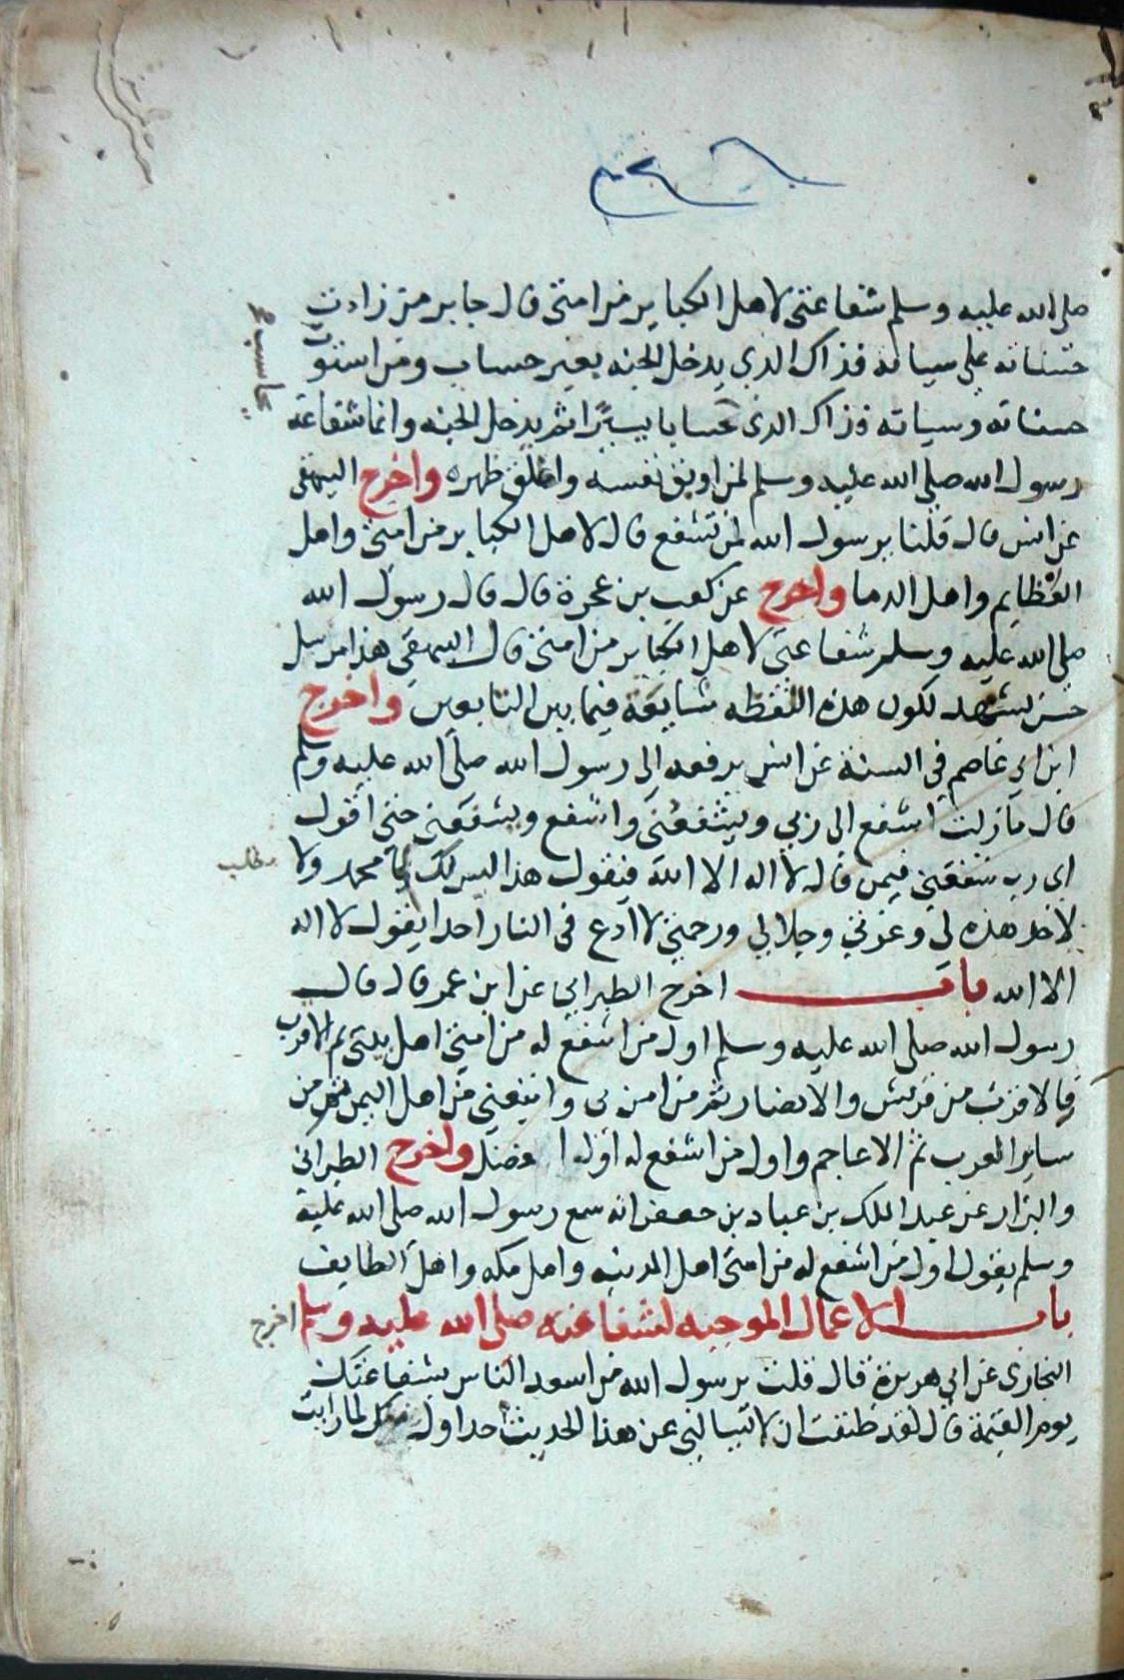 صلى الله عليه وسلم شفاعتى لاهل الكباير من امتى قال جابر من زادت
حسناته على سياته فذاك الدى يدخل الجنه بغير حساب ومن استوت
حسناته وسياته فذاك الدى يحاسب حسابا يسيرا ثم يدخل الجنه وانما شفاعة
رسول الله صلى الله عليه وسلم لمن اوبق نفسه واغلق ظهره واخرج البيهقى
عن انس قال قلنا يرسول الله لمن تشفع قال لاهل الكباير من امتى واهل
العظايم واهل الدما واخرج عن كعب بن عجرة قال قال رسول الله
صلى الله عليه وسلم شفاعتى لاهل الكباير من امتى قال البيهقى هذا مرسل
حسن يشهد لكون هذه اللفظه شايعة فيما بين التابعين واخرج
ابن ابي عاصم في السنة عن انس يرفعه الى رسول الله صلى الله عليه وسلم
قال مازلت اشفع الى ربي ويشفعنى واشفع ويشفعني حتى اقول
اى رب شفعني فيمن قال لا اله الا الله فيقول هذا ليس لك يا محمد ولا
لاحد هذه لي وعزتي وجلالي ورحمتي لا ادع فى النار احدا يقول لا اله
الا الله باب اخرج الطبراني عن ابن عمر قال قال
رسول الله صلى الله عليه وسلم اول من اشفع له من امتى اهل بيتى ثم الاقرب
فالاقرب من قريش والانصار ثم من امن بى واتبعني من اهل اليمن ثم من
ساير العرب ثم الاعاجم واول من اشفع له اولوا الفضل واخرج الطبرانى
والبزار عن عبد الملك بن عباد بن جعفر انه سمع رسول الله صلى الله عليه
وسلم يقول اول من اشفع له من امتى اهل المدينه واهل مكه واهل الطايف
باب الاعمال الموجبه لشفاعته صلى الله عليه وسلم اخرج
البخارى عن ابي هريرة قال قلت يرسول الله من اسعد الناس بشفاعتك
يوم القيمة قال لقد ظننت ان لا يسالني عن هذا الحديث احد اول منك لما رايت
يحاسب
مطلب